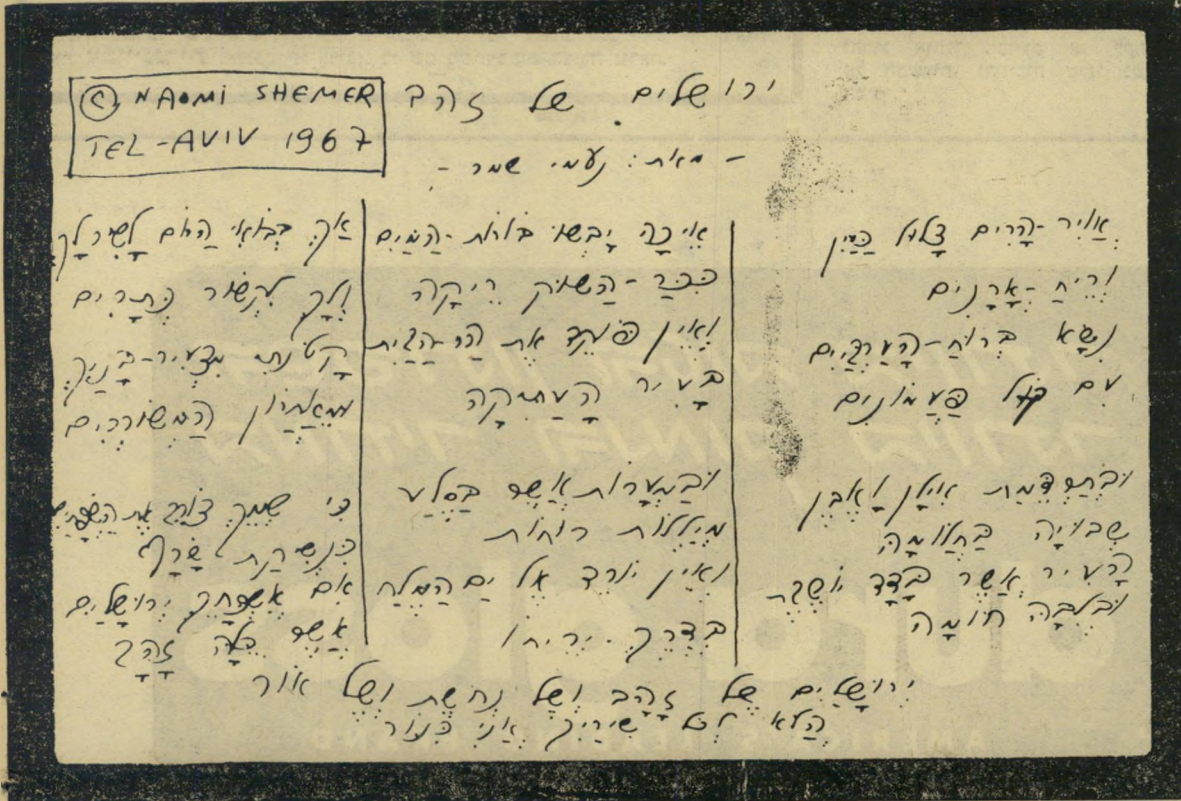 © NAOMI SHEMER
TEL-AVIV 1967
ירושלים של זהב
- מאת: נעמי שמר -
אויר-הרים צלול כיין
וריח-ארנים
נשא ברוח-הערביים
עם קול פעמונים
ובתרדמת אילן ואבן
שבויה בחלומה
העיר אשר בדד יושבת
ובלבה חומה
איכה יבשו בורות-המים
ככר-השוק ריקה
ואין פוקד את הר-הבית
בעיר העתיקה
ובמערות אשר בסלע
מיללות רוחות
ואין יורד אל ים המלח
בדרך יריחו
אך בבואי היום לשיר לך
ולך לקשור כתרים
קטנתי מצעיר-בניך
ומאחרון המשוררים
כי שמך צורב את השפתיים
כנשיקת שרף
אם אשכחך ירושלים
אשר כלה זהב
ירושלים של זהב ושל נחשת ושל אור
הלא לכל שיריך אני כנור